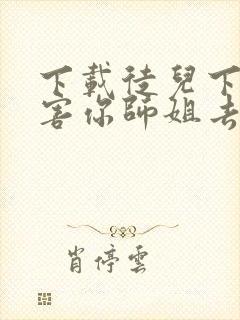 下載徒兒下
害你師姐去
肖停雲